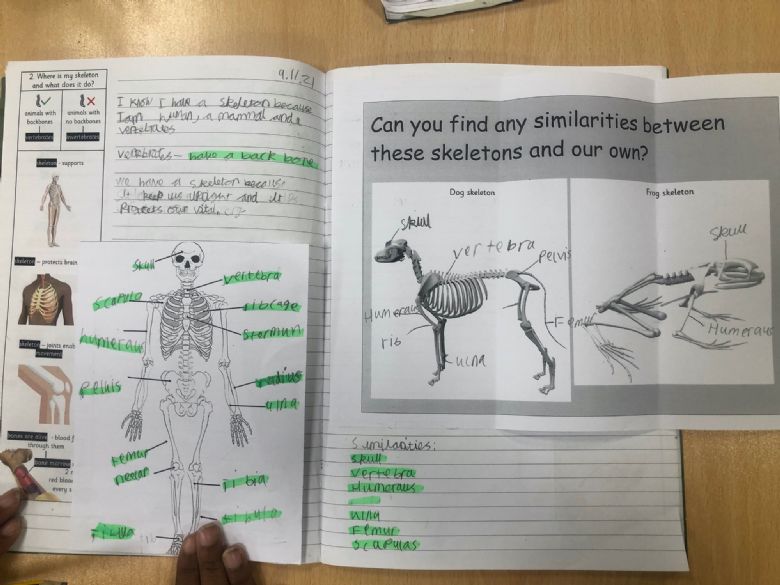 2. Where is my skeleton
and what does it do?
animals with
backbones
animals with
no backbones
vertebrates
invertebrates
skeleton - supports
skeleton - protects brain
skeleton - joints enab
movement
bones are alive - blood
through them
bone marrow
red blood
every s
9.11.21
I know I have a skeleton because
I am human, a mammal and a
vertebrates
vertebrates - have a back bone
we have a skeleton because
it keep us upright and it
Protects our vital
skull
vertebra
scapulo
ribcage
stermun
humeraus
pelvis
radius
ulna
femur
necar
tibia
fibula
Can you find any similarities between
these skeletons and our own?
Dog skeleton
skull
vertebra
pelvis
Humeraus
rib
Femur
ulna
Frog skeleton
skull
Humeraus
Similarities:
skull
vertebra
Humeraus
ulna
Femur
scapulas